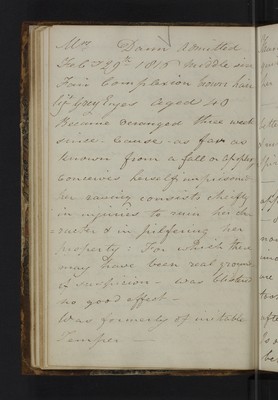 Mrs Dann Admitted
Feb. 29th 1816 Middle size
Fair Complexion brown hair
light Grey Eyes Aged 40
Became deranged three weeks
since. Cause as far as
known from a fall or
conceives herself imprisoned
her raving consists chiefly
in injuries to ruin her cha-
racter & in pilfering her
property: For which there
may have been real grounds
of suspicion – was blistered
no good effect –
Was formerly of irritable
Temper –